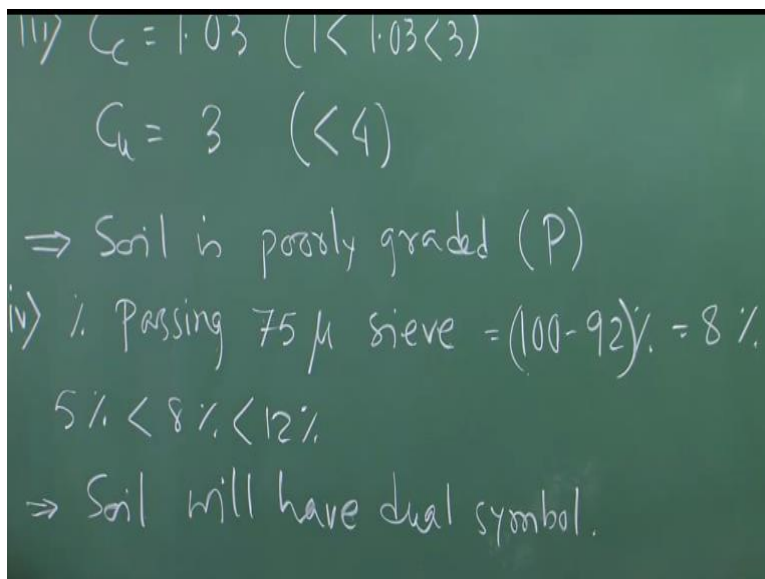 iii) Cc = 1.03 (1 < 1.03 < 3)
Cu = 3 (< 4)
⇒ Soil is poorly graded (P)
iv) % Passing 75 μ sieve = (100 - 92)% = 8 %
5% < 8% < 12%
⇒ Soil will have dual symbol.